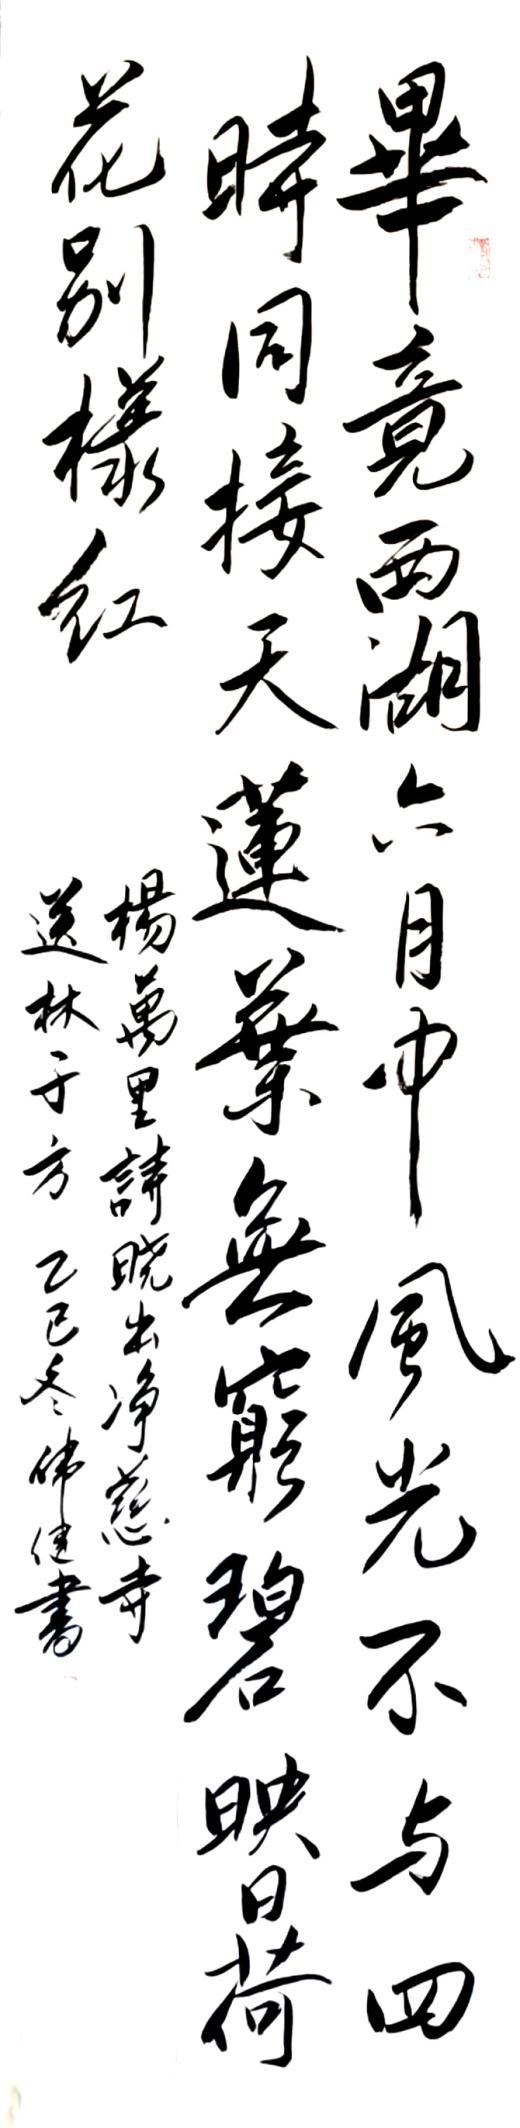 畢竟西湖六月中風光不与四
時同接天蓮葉無窮碧映日荷
花別樣红
楊萬里詩曉出净慈寺
送林子方 乙巳冬 偉健書